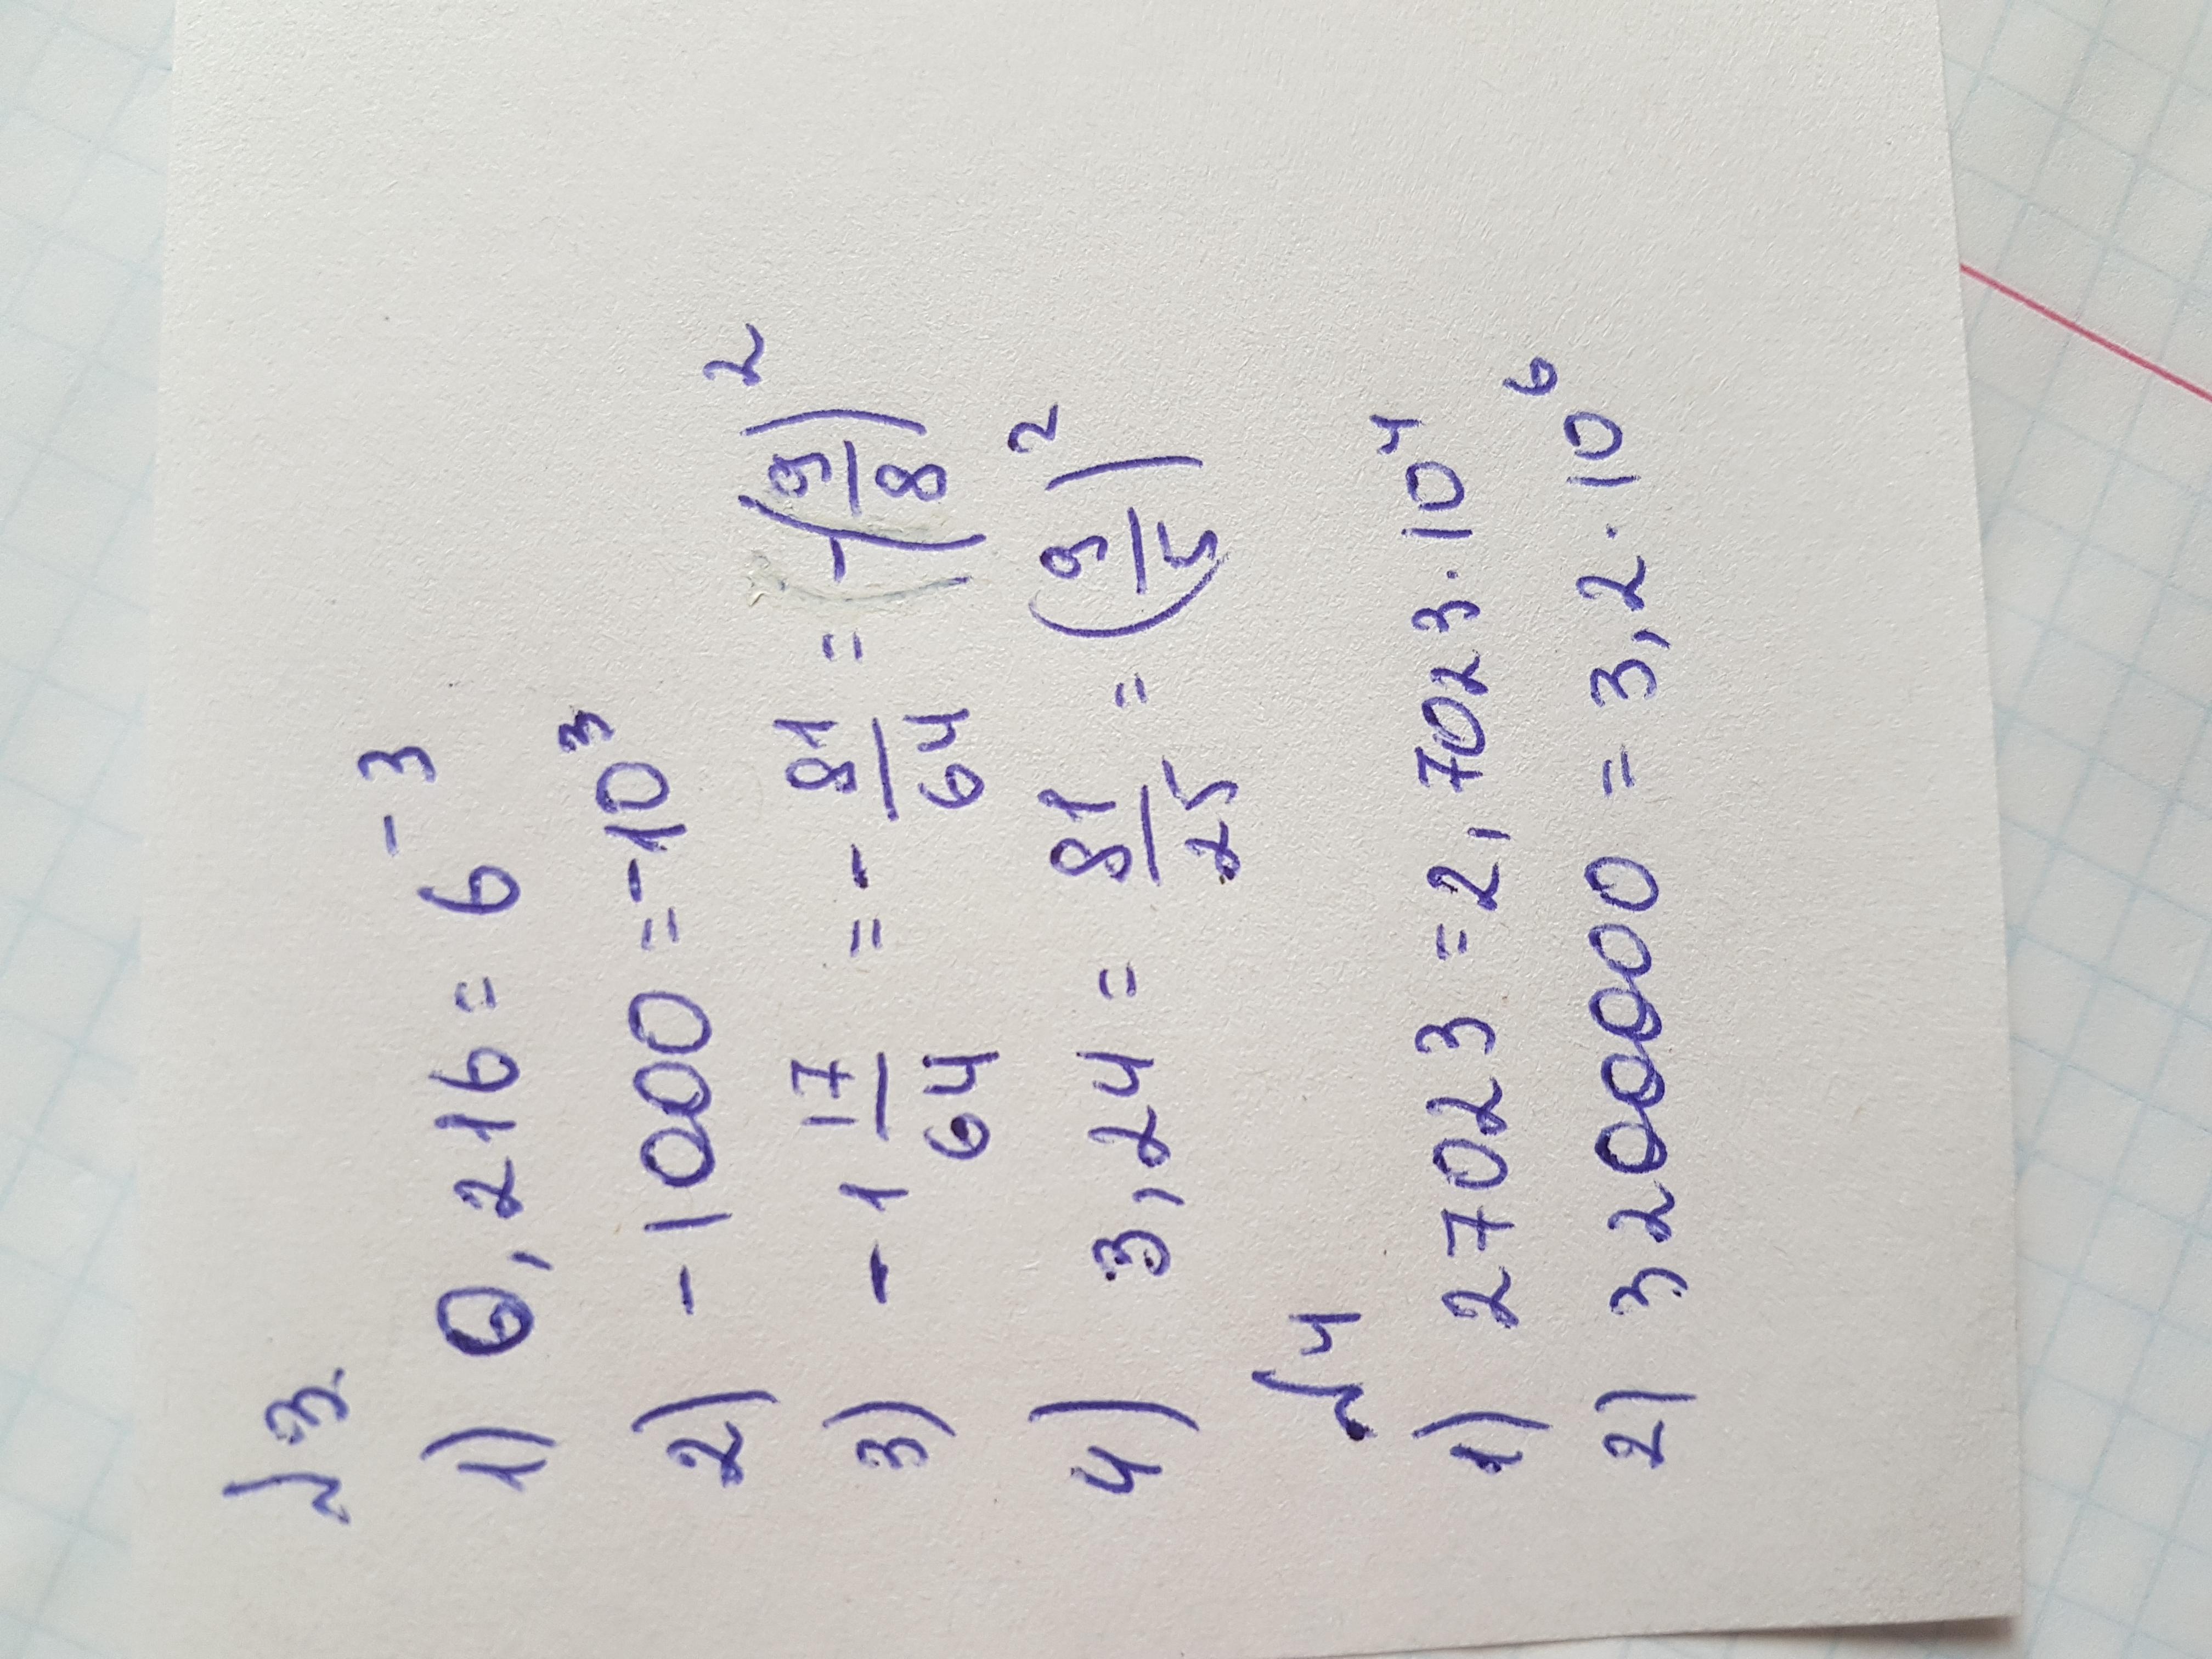 №3.
1) 0,216 = 6⁻³
2) -1000 = -10³
3) -1 17/64 = - 81/64 = -(9/8)²
4) 3,24 = 81/25 = (9/5)²
№4
1) 27023 = 2,7023·10⁴
2) 3200000 = 3,2·10⁶